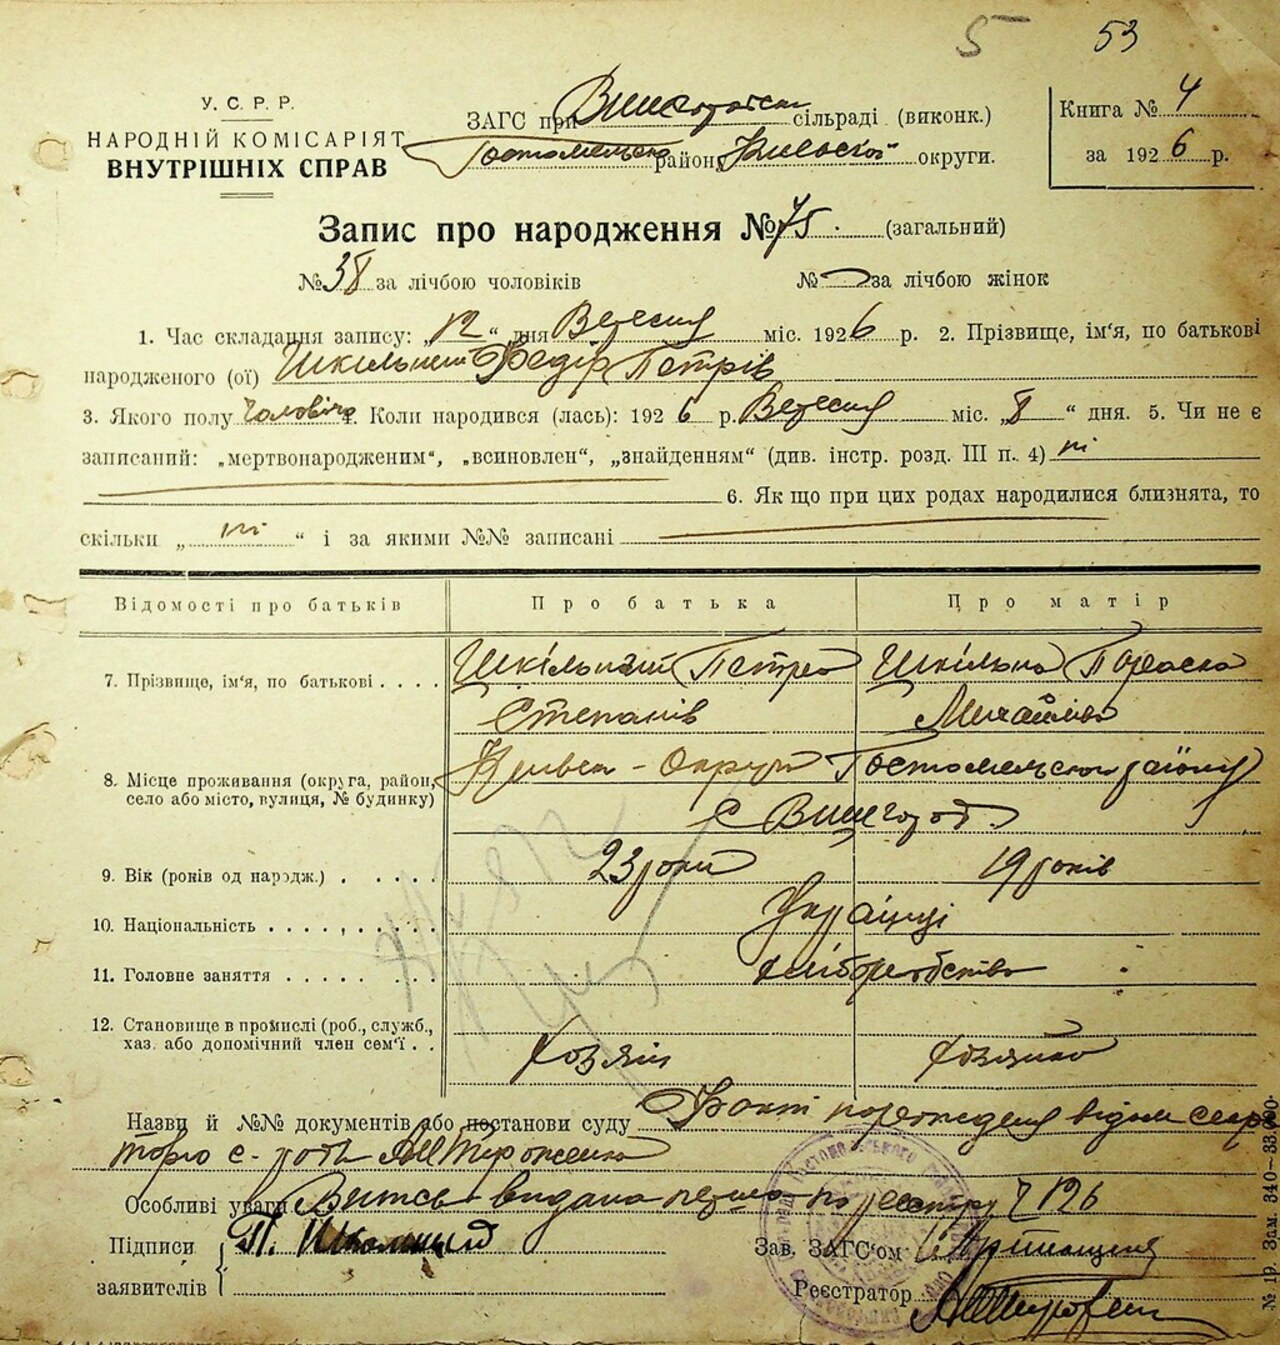 5 53
У. С. Р. Р.
НАРОДНІЙ КОМІСАРІЯТ
ВНУТРІШНІХ СПРАВ
ЗАГС при Вишгородськ сільраді (виконк.)
Гостомельськ район, Київської округи.
Книга № 4
за 1926 р.
Запис про народження № 75. (загальний)
№ 38 за лічбою чоловіків № за лічбою жінок
1. Час складання запису: „12“ дня Вересня міс. 1926 р. 2. Прізвище, ім'я, по батькові
народженого (ої) Шкільний Федір Петрів
3. Якого полу чоловіч 4. Коли народився (лась): 1926 р. Вересня міс. „8“ дня. 5. Чи не є
записаний: „мертвонародженим“, „всиновлен“, „знайденням“ (див. інстр. розд. III п. 4) ні
6. Як що при цих родах народилися близнята, то
скільки „ні“ і за якими №№ записані
Відомості про батьків Про батька Про матір
7. Прізвище, ім'я, по батькові . . . . Шкільний Петро Шкільна Параска
Степанів Михайлівна
8. Місце проживання (округа, район, Київськ - Округи Гостомельськ району
село або місто, вулиця, № будинку) с Вишгород.
9. Вік (років од народж.) . . . . . 23 роки 19 років
10. Національність . . . . . . . . Українці
11. Головне заняття . . . . . . хліборобство
12. Становище в промислі (роб., служб.,
хаз. або допомічний член сем'ї . . Хозяїн Хозяйка
Назви й №№ документів або постанови суду Факт народження відом секре
тарю с-ради
Особливі уваги Витсь видана по реєстру Ч 126
Підписи П. Шкільний Зав. ЗАГС'ом
заявителів Реєстратор
№ 19. Зам. 340—33.000.